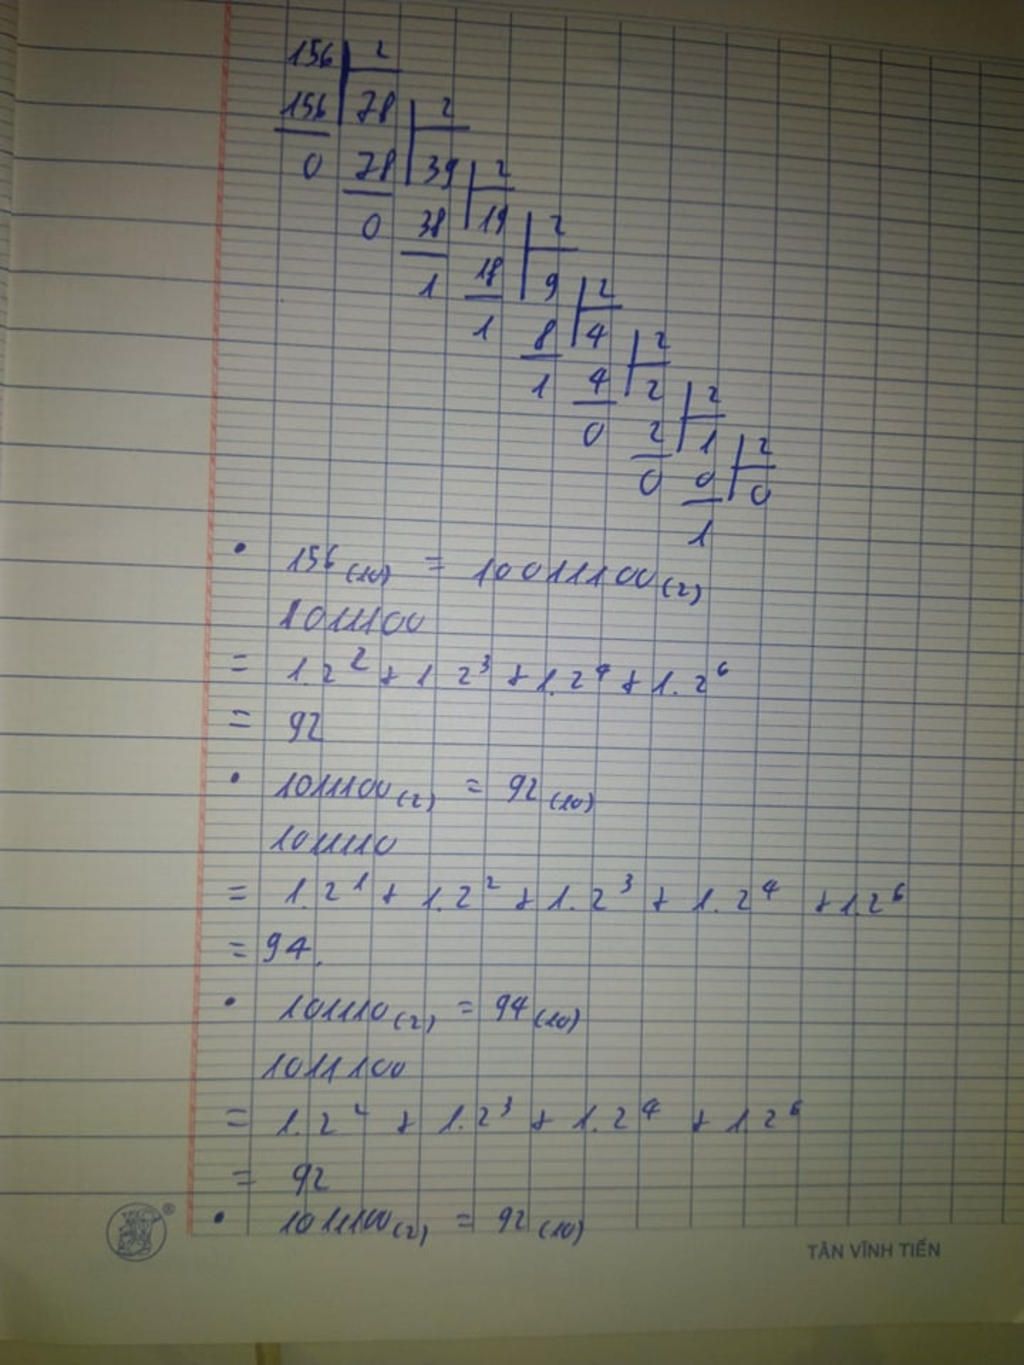 156 2
156 78 2
0 78 39 2
0 38 19 2
1 18 9 2
1 8 4 2
1 4 2 2
0 2 1 2
0 0 0
1
• 156(10) = 10011100(2)
1011100
= 1.2² + 1 2³ + 1.2⁴ + 1.2⁶
= 92
• 1011100(2) = 92(10)
1011110
= 1.2¹ + 1.2² + 1.2³ + 1.2⁴ + 1.2⁶
= 94.
• 1011110(2) = 94(10)
1011100
= 1.2² + 1.2³ + 1.2⁴ + 1 2⁶
= 92
• 1011100(2) = 92(10)
®
TÂN VĨNH TIẾN